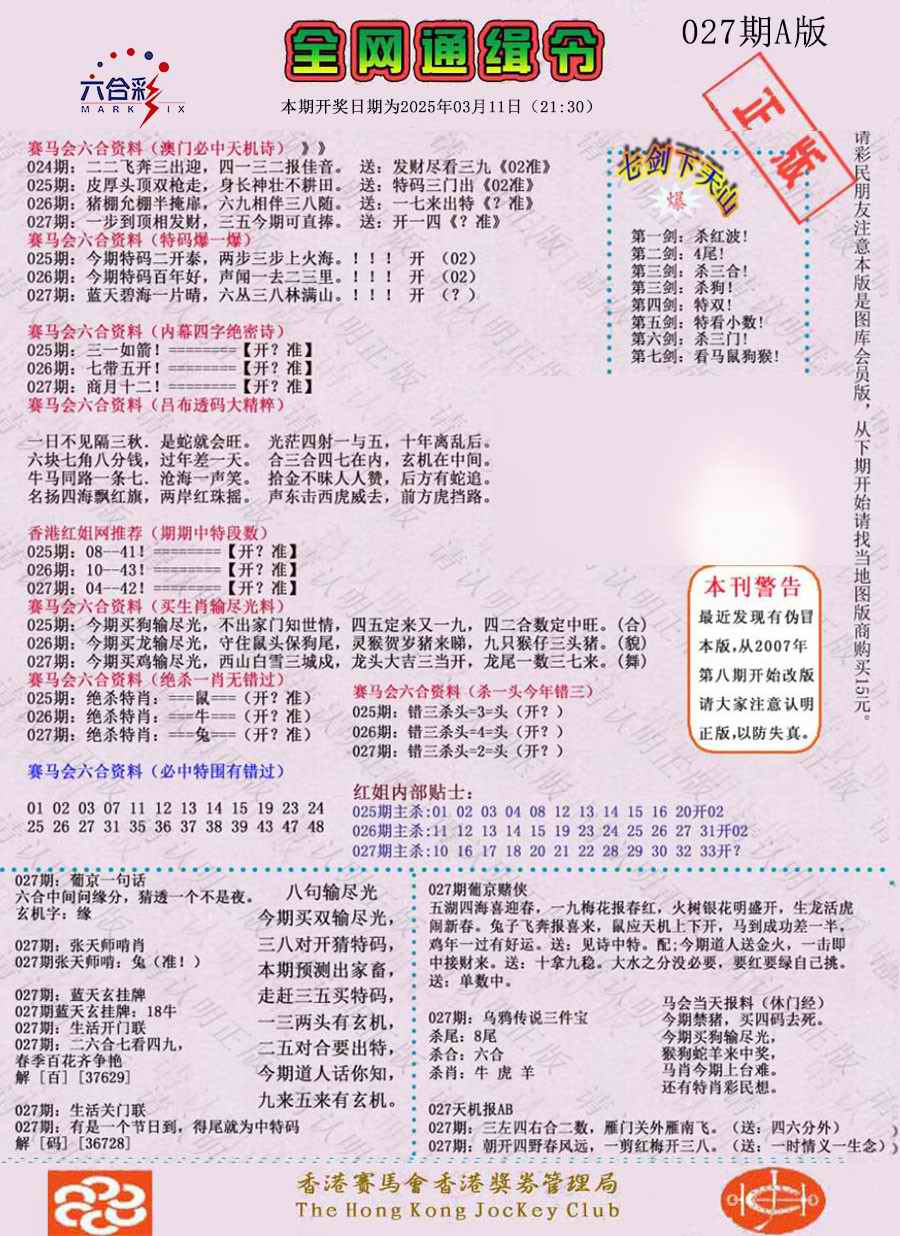 全网通缉令
027期A版
六合彩
MARK SIX
本期开奖日期为2025年03月11日（21:30）
正版
赛马会六合资料（澳门必中天机诗）》》
024期：二二飞奔三出迎，四一三二报佳音。 送：发财尽看三九《02准》
025期：皮厚头顶双枪走，身长神壮不耕田。 送：特码三门出《02准》
026期：猪棚允棚半掩扉，六九相伴三八随。 送：一七来出特《？准》
027期：一步到顶相发财，三五今期可直捧。 送：开一四《？准》
赛马会六合资料（特码爆一爆）
025期：今期特码二开泰，两步三步上火海。！！！ 开 （02）
026期：今期特码百年好，声闻一去二三里。！！！ 开 （02）
027期：蓝天碧海一片晴，六从三八林满山。！！！ 开 （？）
赛马会六合资料（内幕四字绝密诗）
025期：三一如箭！========【开？准】
026期：七带五开！========【开？准】
027期：商月十二！========【开？准】
赛马会六合资料（吕布透码大精粹）
一日不见隔三秋．是蛇就会旺。 光茫四射一与五，十年离乱后。
六块七角八分钱，过年差一天。 合三合四七在内，玄机在中间。
牛马同路一条七．沧海一声笑。 拾金不昧人人赞，后方有蛇追。
名扬四海飘红旗，两岸红珠摇。 声东击西虎威去，前方虎挡路。
七剑下天山
爆
第一剑：杀红波！
第二剑：4尾！
第三剑：杀三合！
第三剑：杀狗！
第四剑：特双！
第五剑：特看小数！
第六剑：杀三门！
第七剑：看马鼠狗猴！
请彩民朋友注意本版是图库会员版，从下期开始请找当地图版商购买15元。
香港红姐网推荐（期期中特段数）
025期：08--41！========【开？准】
026期：10--43！========【开？准】
027期：04--42！========【开？准】
赛马会六合资料（买生肖输尽光料）
025期：今期买狗输尽光，不出家门知世情，四五定来又一九，四二合数定中旺。(合)
026期：今期买龙输尽光，守住鼠头保狗尾，灵猴贺岁猪来睇，九只猴仔三头猪。(貌)
027期：今期买鸡输尽光，西山白雪三城戍，龙头大吉三当开，龙尾一数三七来。(舞)
本刊警告
最近发现有伪冒
本版,从2007年
第八期开始改版
请大家注意认明
正版,以防失真。
赛马会六合资料（绝杀一肖无错过）
025期：绝杀特肖：===鼠===（开？准）
026期：绝杀特肖：===牛===（开？准）
027期：绝杀特肖：===兔===（开？准）
赛马会六合资料（杀一头今年错三）
025期：错三杀头=3=头（开？）
026期：错三杀头=4=头（开？）
027期：错三杀头=2=头（开？）
赛马会六合资料（必中特围有错过）
01 02 03 07 11 12 13 14 15 19 23 24
25 26 27 31 35 36 37 38 39 43 47 48
红姐内部贴士：
025期主杀:01 02 03 04 08 12 13 14 15 16 20开02
026期主杀:11 12 13 14 15 19 23 24 25 26 27 31开02
027期主杀:10 16 17 18 20 21 22 28 29 30 32 33开？
027期：葡京一句话
六合中间问缘分，猜透一个不是夜。
玄机字：缘
027期：张天师啃肖
027期张天师啃：兔（准！）
027期：蓝天玄挂牌
027期蓝天玄挂牌：18牛
027期：生活开门联
027期：二六合七看四九，
春季百花齐争艳
解［百］[37629]
027期：生活关门联
027期：有是一个节日到，得尾就为中特码
解［码］[36728]
八句输尽光
今期买双输尽光，
三八对开猜特码，
本期预测出家畜，
走赶三五买特码，
一三两头有玄机，
二五对合要出特，
今期道人话你知，
九来五来有玄机。
027期葡京赌侠
五湖四海喜迎春，一九梅花报春红，火树银花明盛开，生龙活虎
闹新春。兔子飞奔报喜来，鼠应天机上下开，马到成功差一半，
鸡年一过有好运。送：见诗中特。配;今期道人送金火，一击即
中接财来。送：十拿九稳。大水之分没必要，要红要绿自己挑。
送：单数中。
027期：乌鸦传说三件宝
杀尾：8尾
杀合：六合
杀肖：牛 虎 羊
马会当天报料（休门经）
今期禁猪，买四码去死。
今期买狗输尽光，
猴狗蛇羊来中奖，
马肖今期上台难。
还有特肖彩民想。
027天机报AB
027期：三左四右合二数，雁门关外雁南飞。（送：四六分外）
027期：朝开四野春风远，一剪红梅开三八。（送：一时情义一生念）
香港賽馬會香港獎券管理局
The Hong Kong JocKey Club